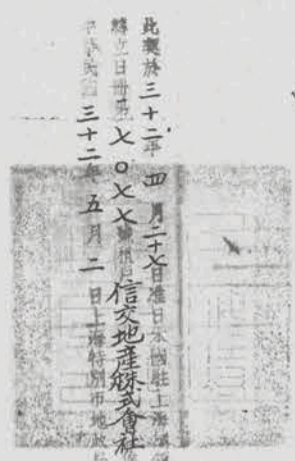 此契於三十二年四月二十七日准日本國駐上海
轉立日冊第七〇七七號租戶信交地産株式會社
中華民國三十二年五月二日上海特別市地政局